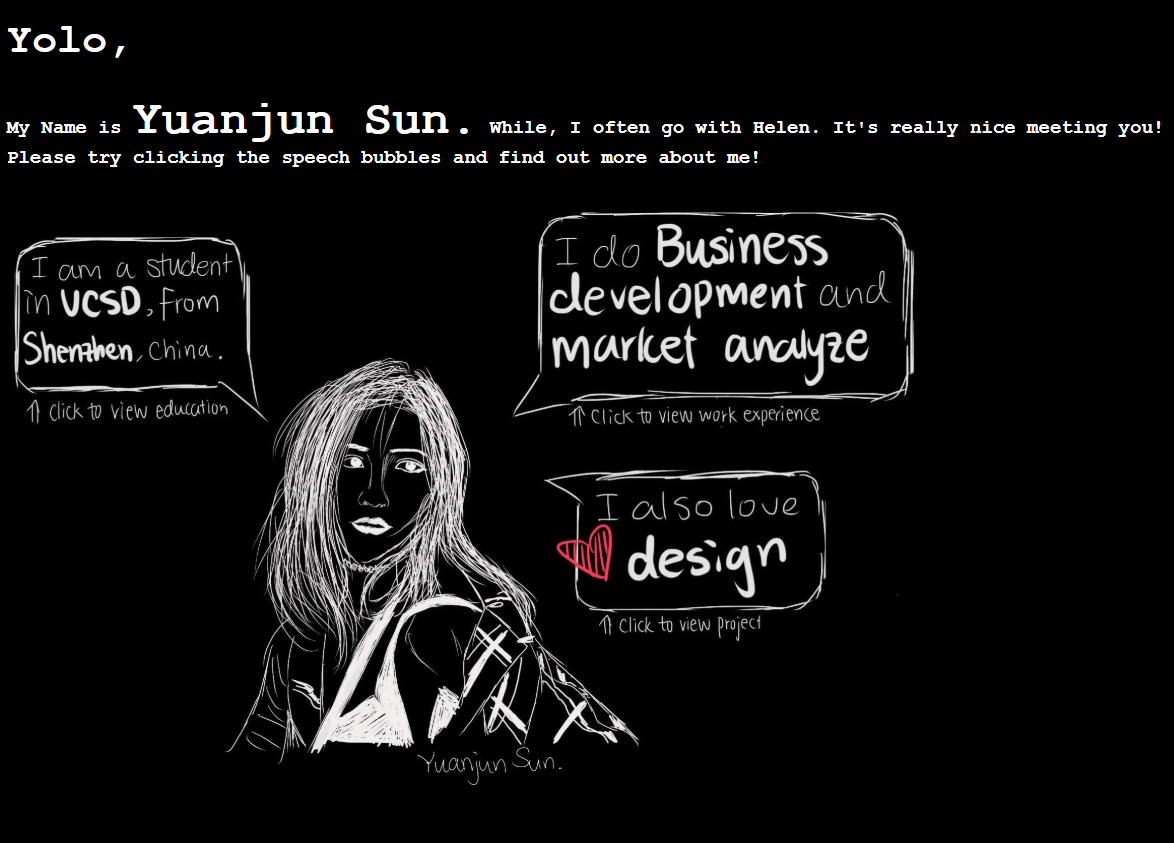 Yolo,
My Name is Yuanjun Sun. While, I often go with Helen. It's really nice meeting you!
Please try clicking the speech bubbles and find out more about me!
I am a student
in UCSD, from
Shenzhen, China.
⇑ Click to view education
I do Business
development and
market analyze
⇑ Click to view work experience
I also love
design
⇑ Click to view project
Yuanjun Sun.